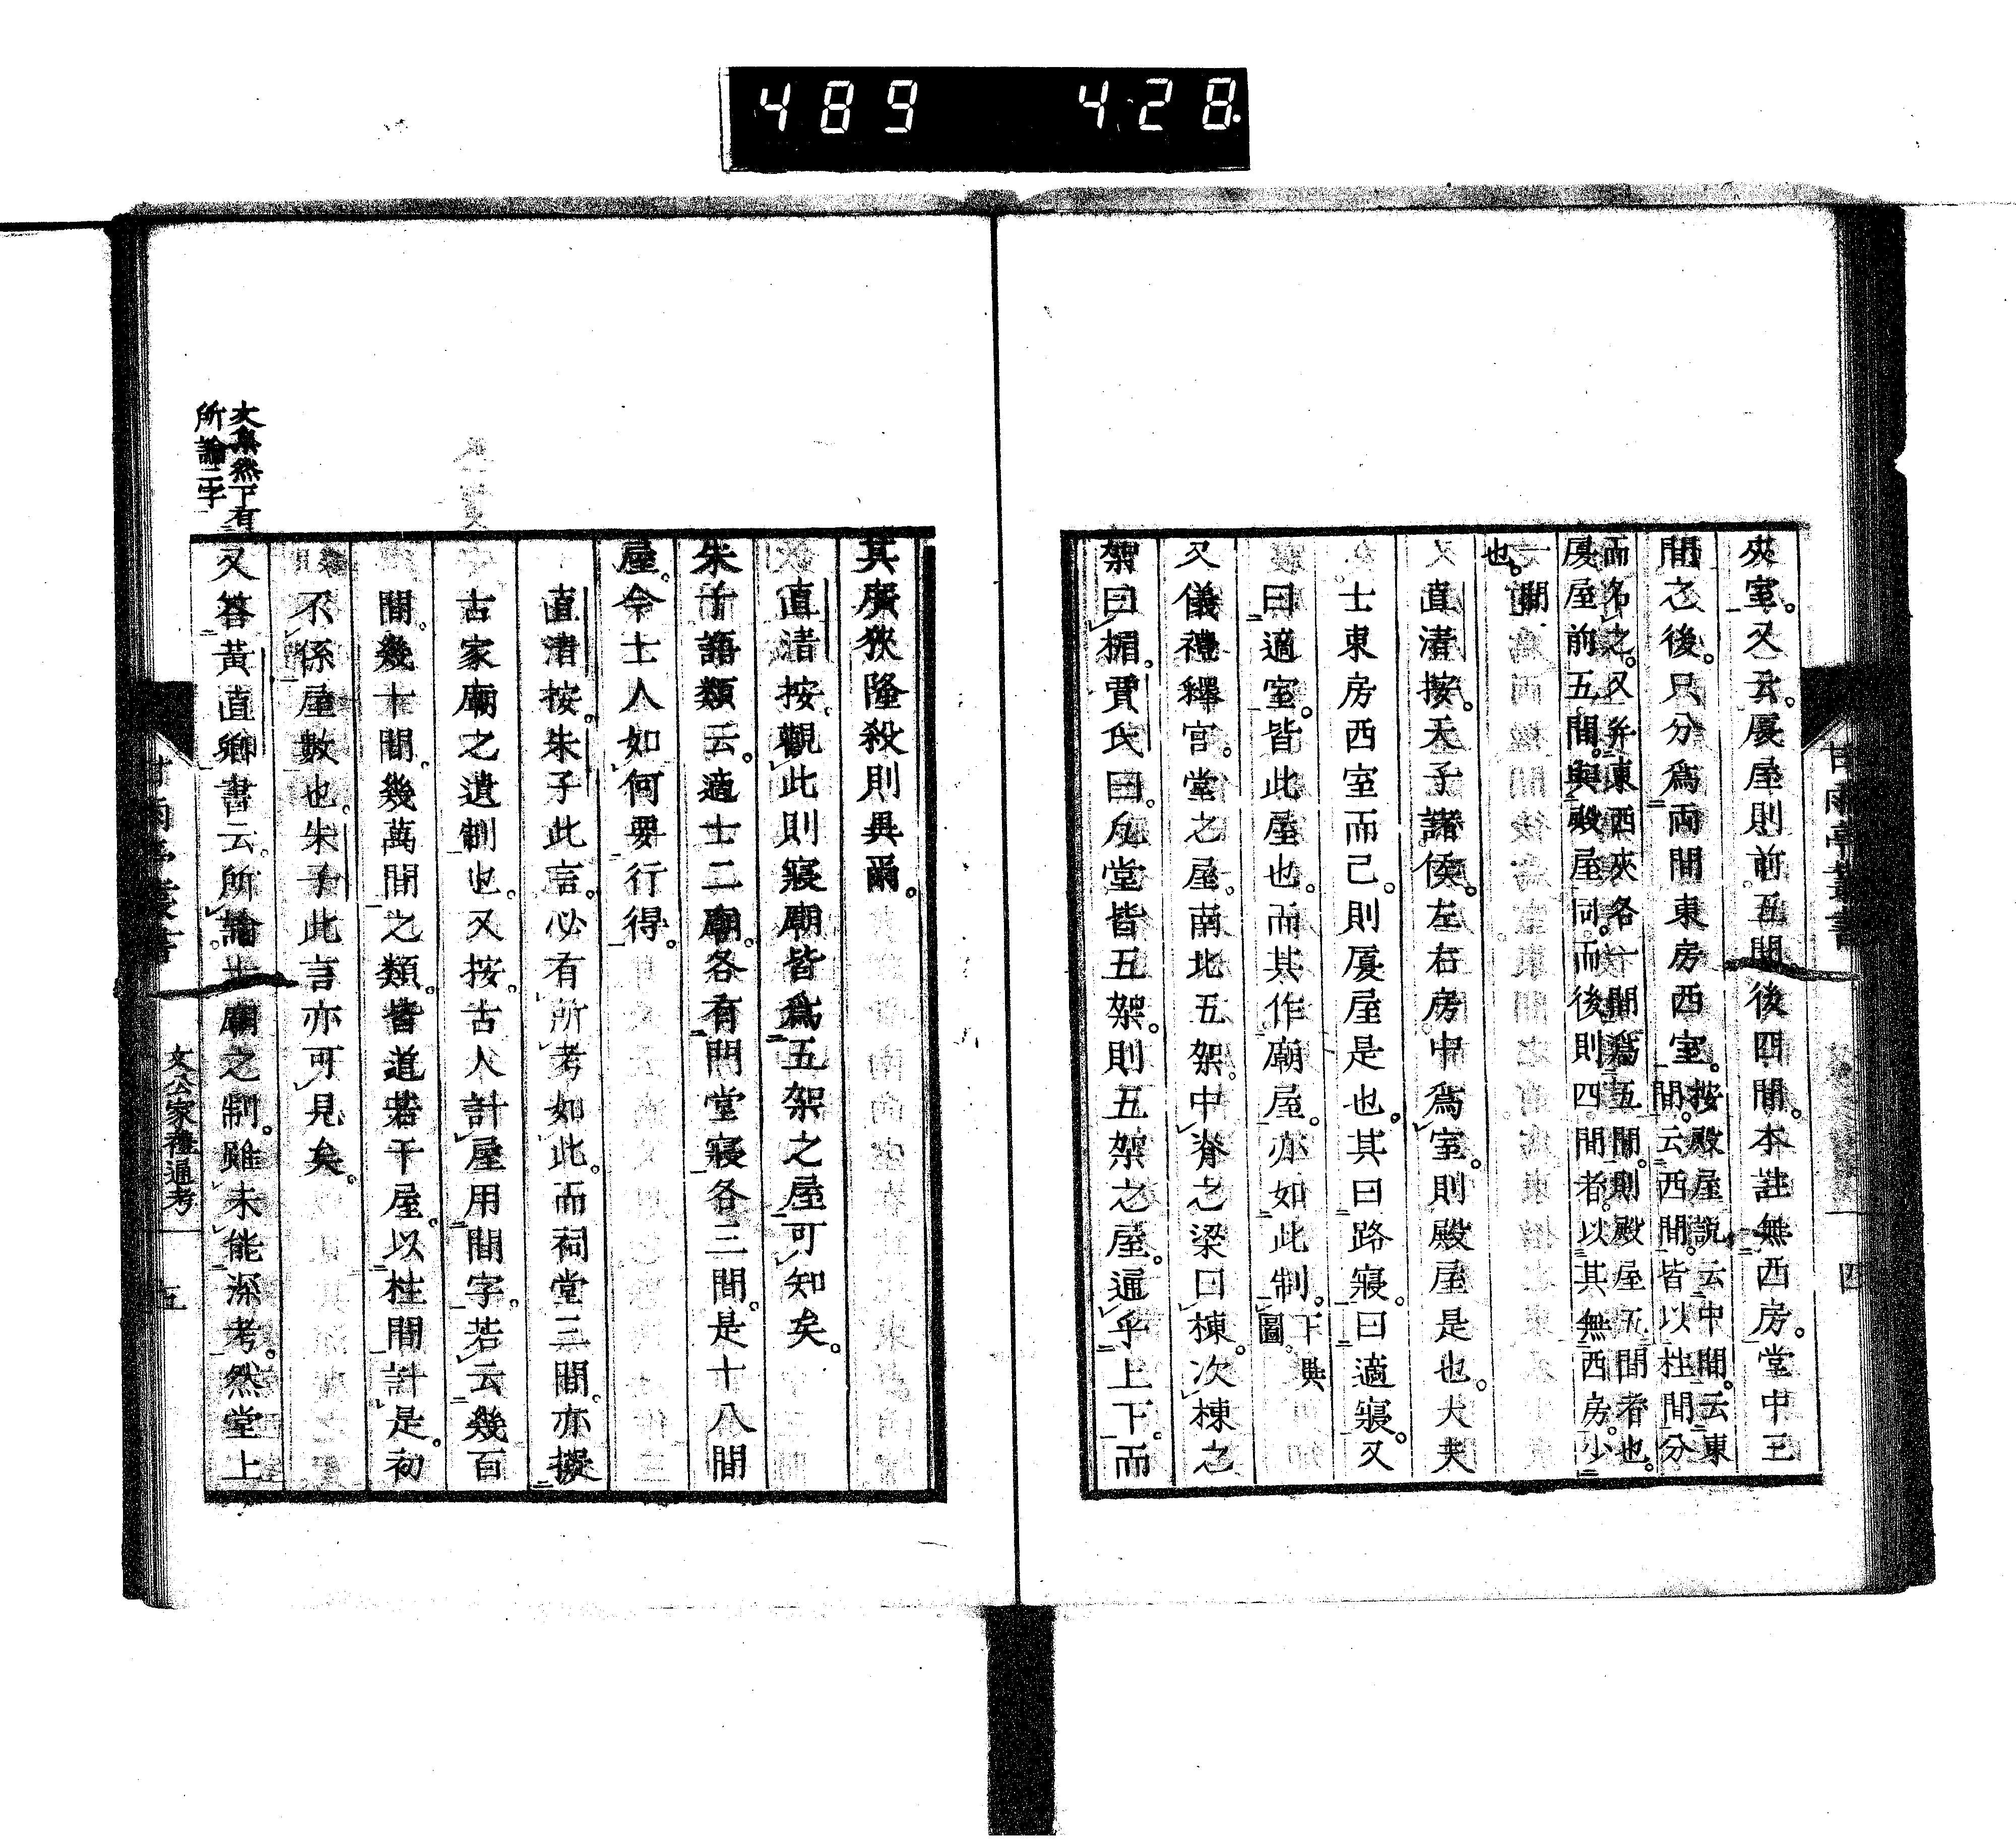 489 428.
夾室。又云。厦屋則前五間後四間。本註無西房。堂中三
間之後。只分爲兩間東房西室。
按殿屋説云中間。云東
間。云西間。皆以柱間分
而名之。又并東西夾各一間爲五間。則殿屋五間者也。
厦屋前五間。與殿屋同。而後則四間者。以其無西房。少
一間
也。
直清按。天子諸侯。左右房中爲室。則殿屋是也。大夫
士東房西室而已。則厦屋是也。其曰路寢。曰適寢。又
曰適室。皆此屋也。而其作廟屋。亦如此制。
下與
圖。
又儀禮釋宮。堂之屋。南北五架。中脊之梁曰棟。次棟之
架曰楣。賈氏曰。凡堂皆五架。則五架之屋。通乎上下。而
其廣狹隆殺則異爾。
直清按。觀此則寢廟皆爲五架之屋可知矣。
朱子語類云。適士二廟。各有門堂寢各三間。是十八間
屋。今士人如何要行得。
直清按。朱子此言。必有所考如此。而祠堂三間。亦擬
古家廟之遺制也。又按。古人計屋用間字。若云幾百
間。幾十間。幾萬間之類。皆道若干屋。以柱間計是。初
不係屋數也。朱子此言亦可見矣。
又答黃直卿書云。所論士廟之制。雖未能深考。然堂上
文集然下有
所論二字
甘雨亭叢書
四
文公家禮通考
五